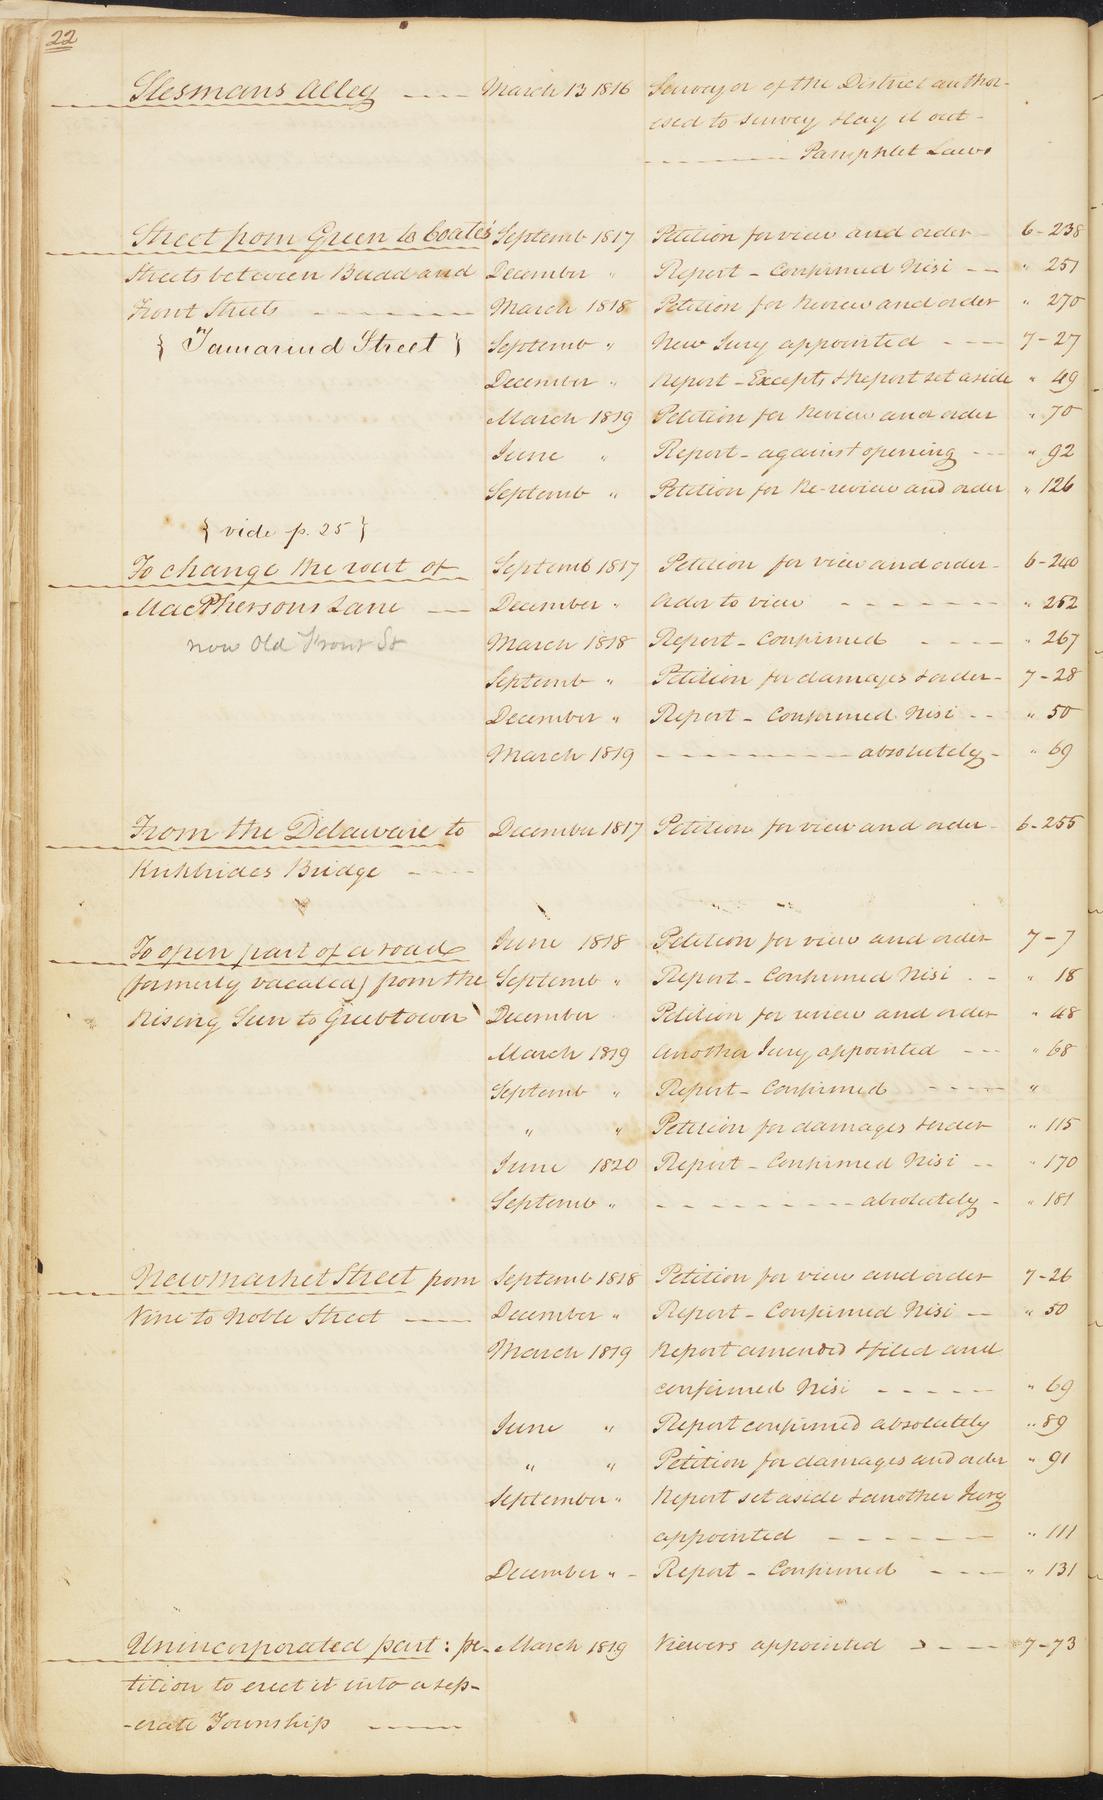 22
Slesmans Alley ---- March 13 1816 Surveyor of the District author-
ised to survey & lay it out -
Pamphlet Laws
Street from Green to Coates' Septemb 1817 Petition for view and order 6-238
Streets between Budd and December " Report - Confirmed Nisi -- " 251
Front Streets March 1818 Petition for Review and order " 270
{ Tamarind Street } Septemb " New Jury appointed --- 7-27
December " Report - Excepts & Report set aside " 49
March 1819 Petition for Review and order " 70
June " Report - against opening --- " 92
Septemb " Petition for Re-review and order " 126
{ vide p. 25 }
To change the rout of Septemb 1817 Petition for view and order - 6-240
MacPhersons Lane --- December " Order to view " 252
now Old Front St March 1818 Report - Confirmed ---- " 267
Septemb " Petition for damages & order - 7-28
December " Report - Confirmed Nisi -- " 50
March 1819 --------- absolutely - " 69
From the Delaware to December 1817 Petition for view and order - 6-255
Kirkbrides Bridge ----
To open part of a road June 1818 Petition for view and order 7-7
(formerly vacated) from the Septemb " Report - Confirmed Nisi -- " 18
Rising Sun to Gibbtown December Petition for review and order " 48
March 1819 Another Jury appointed --- " 68
Septemb " Report - Confirmed ---- "
" " Petition for damages & order " 115
June 1820 Report - Confirmed Nisi -- " 170
Septemb " --------- absolutely - " 181
Newmarket Street from Septemb 1818 Petition for view and order 7-26
Vine to Noble Street --- December " Report - Confirmed Nisi -- " 50
March 1819 Report amended & filed and
confirmed Nisi ----- " 69
June " Report confirmed absolutely " 89
" " Petition for damages and order " 91
September " Report set aside & another Jury
appointed ------ " 111
December " - Report - Confirmed ---- " 131
Unincorporated part: pe- March 1819 Viewers appointed ---- 7-73
tition to erect it into a sep-
-erate Township ----